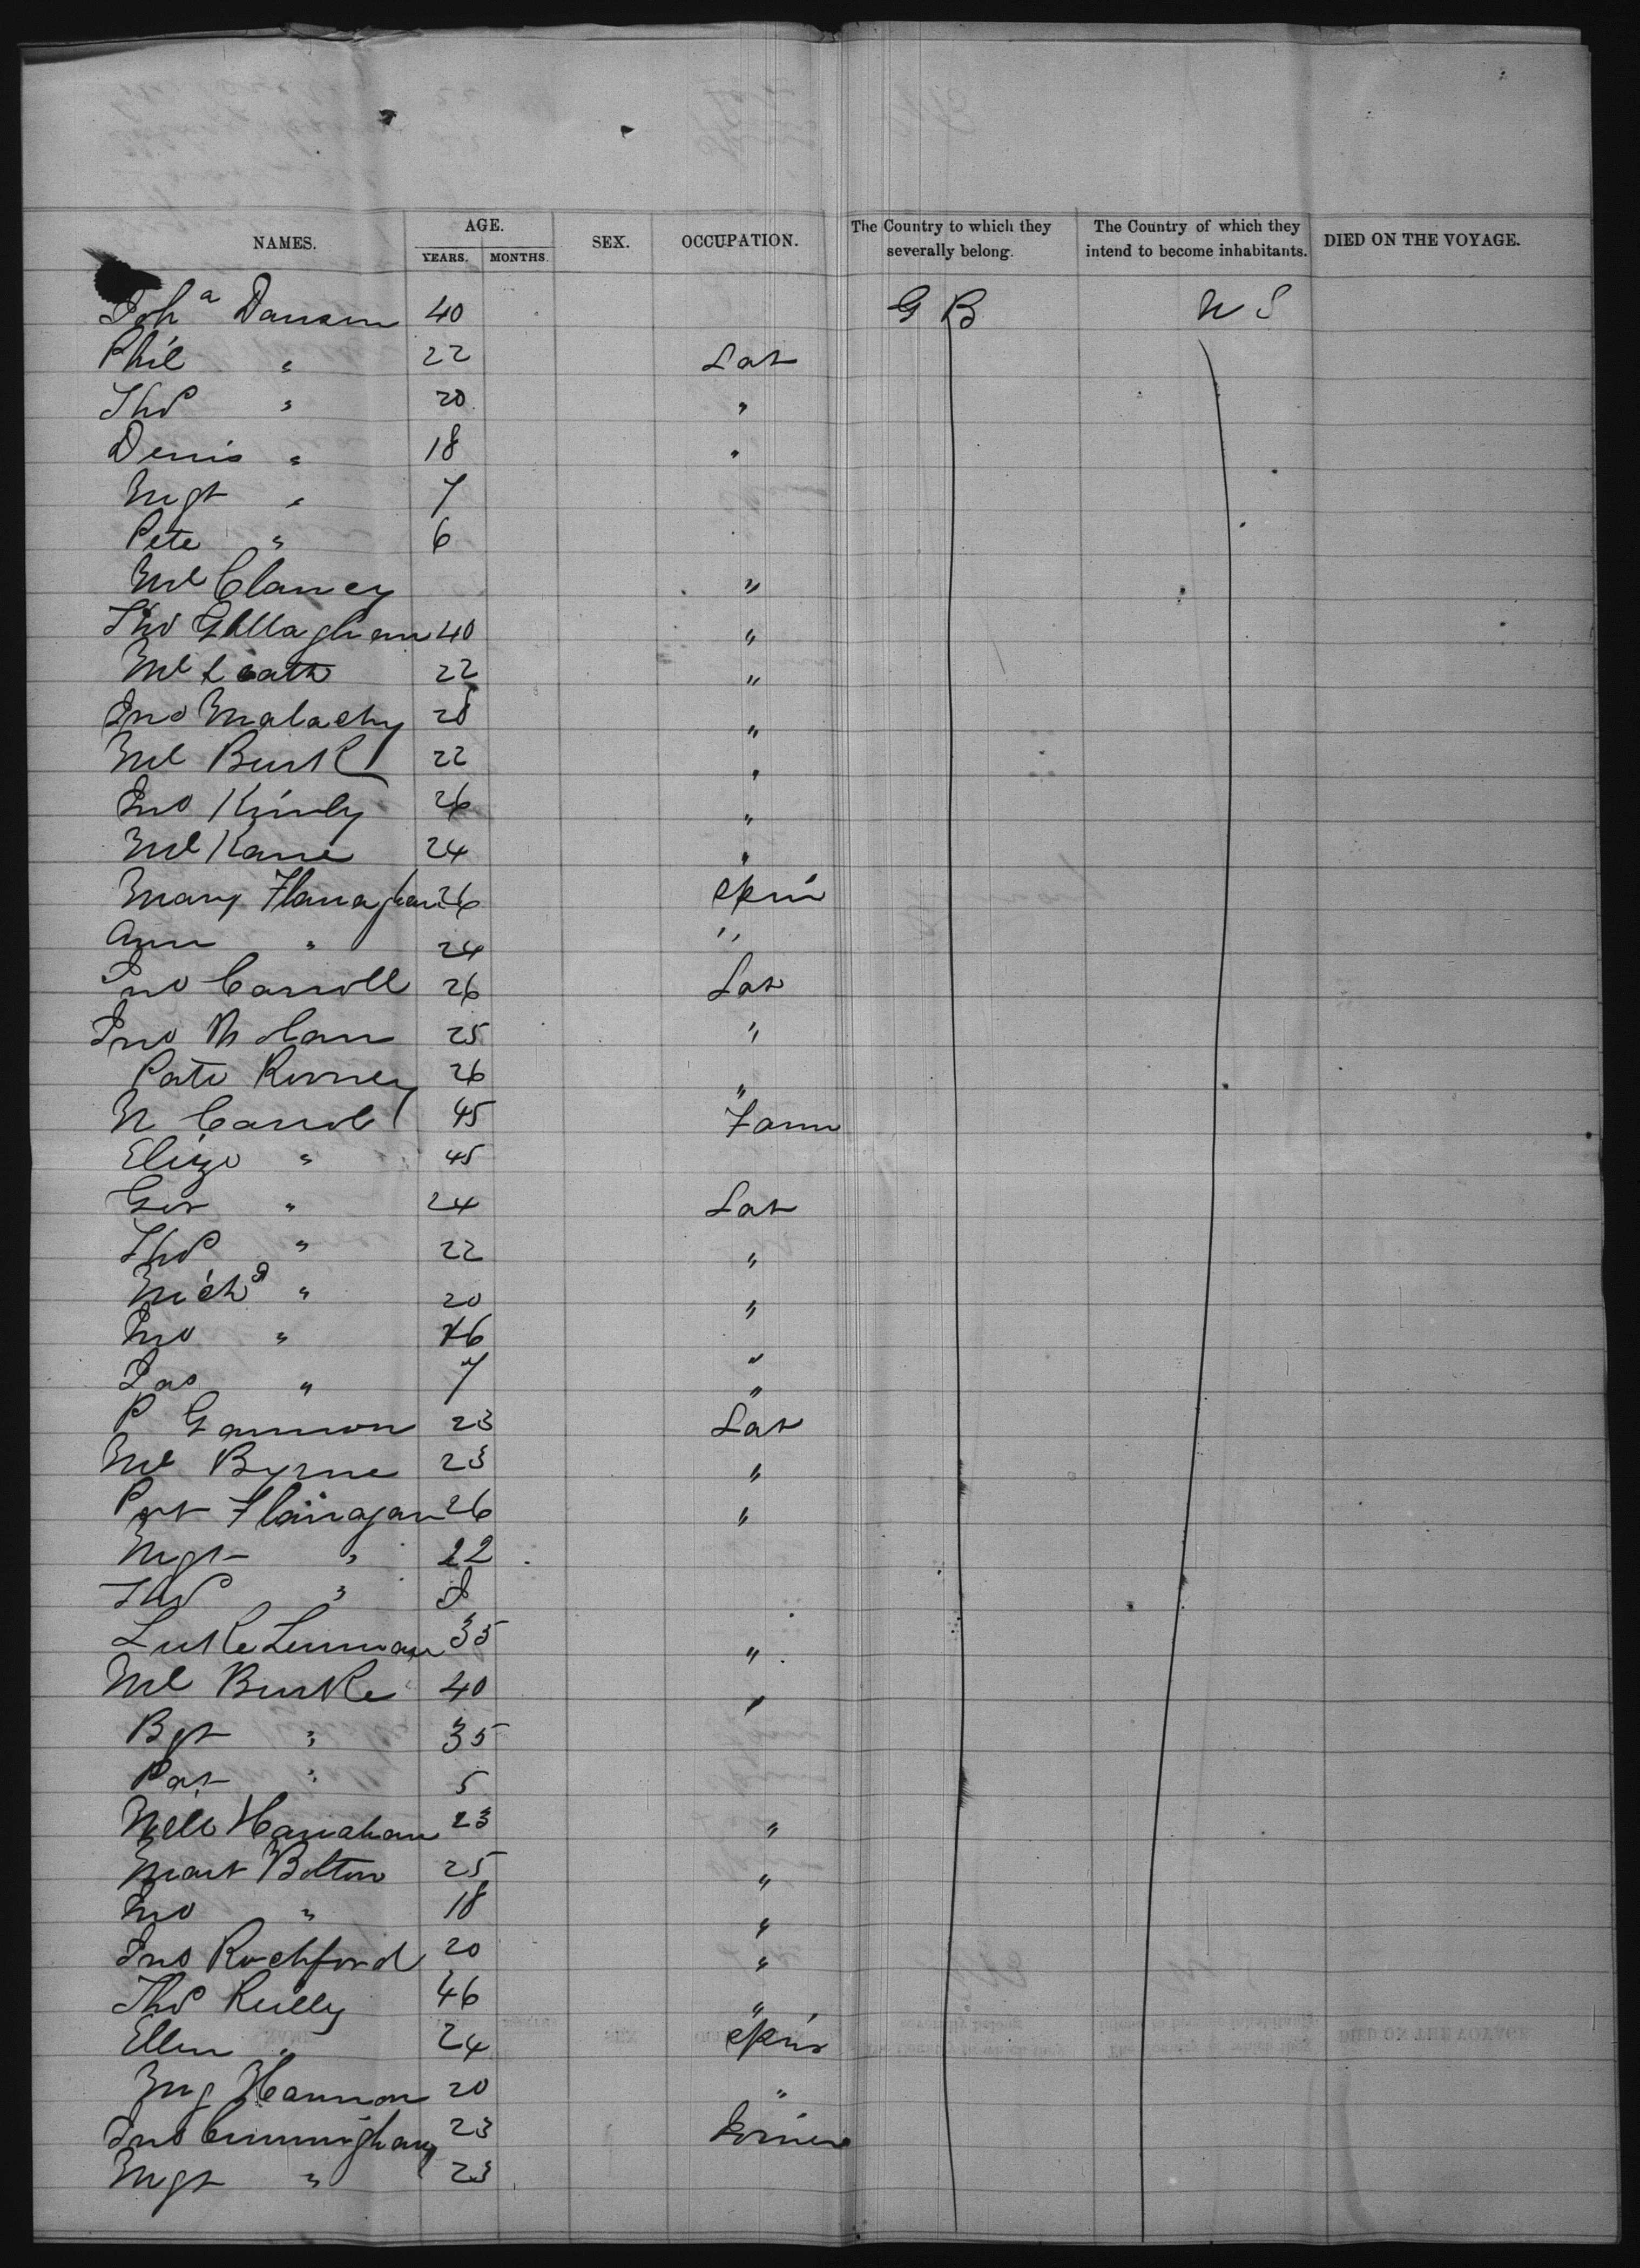 NAMES. AGE. SEX. OCCUPATION. The Country to which they severally belong. The Country of which they intend to become inhabitants. DIED ON THE VOYAGE.
YEARS. MONTHS.
Joha 40 G B U S
Phil " 22 Lab
Thos " 20 "
Denis " 18 "
Mgt " 7
Pete " 6
Ml Clancy "
Thos Gallaghan 40 "
Ml 22 "
Jno Malachy 28 "
Ml Burk 22 "
Jno 26 "
Ml Kane 24 "
Mary Flanaghan 26 Spin
Ann " 24 "
Jno Carroll 26 Lab
Jno Nolan 25 "
26 "
Carroll 45 Farm
Eliza " 45
24 Lab
Thos " 22 "
" 20 "
Jno " 16 "
Jas " 7 "
P Gannon 23 Lab
Ml Byrne 23 "
Pat Flanagan 26 "
Mgt " 22
Thos "
Luke Lennan 35 "
Ml Burke 40 "
Bgt " 35
Pat " 5
Hanahan 23 "
Mart Bolton 25 "
Jno " 18 "
Jno Rochford 20 "
Thos Reilly 46 "
Ellen " 24 Spin
Mg Hannon 20 "
Jno Cunningham 23 Joiner
Mgt " 23